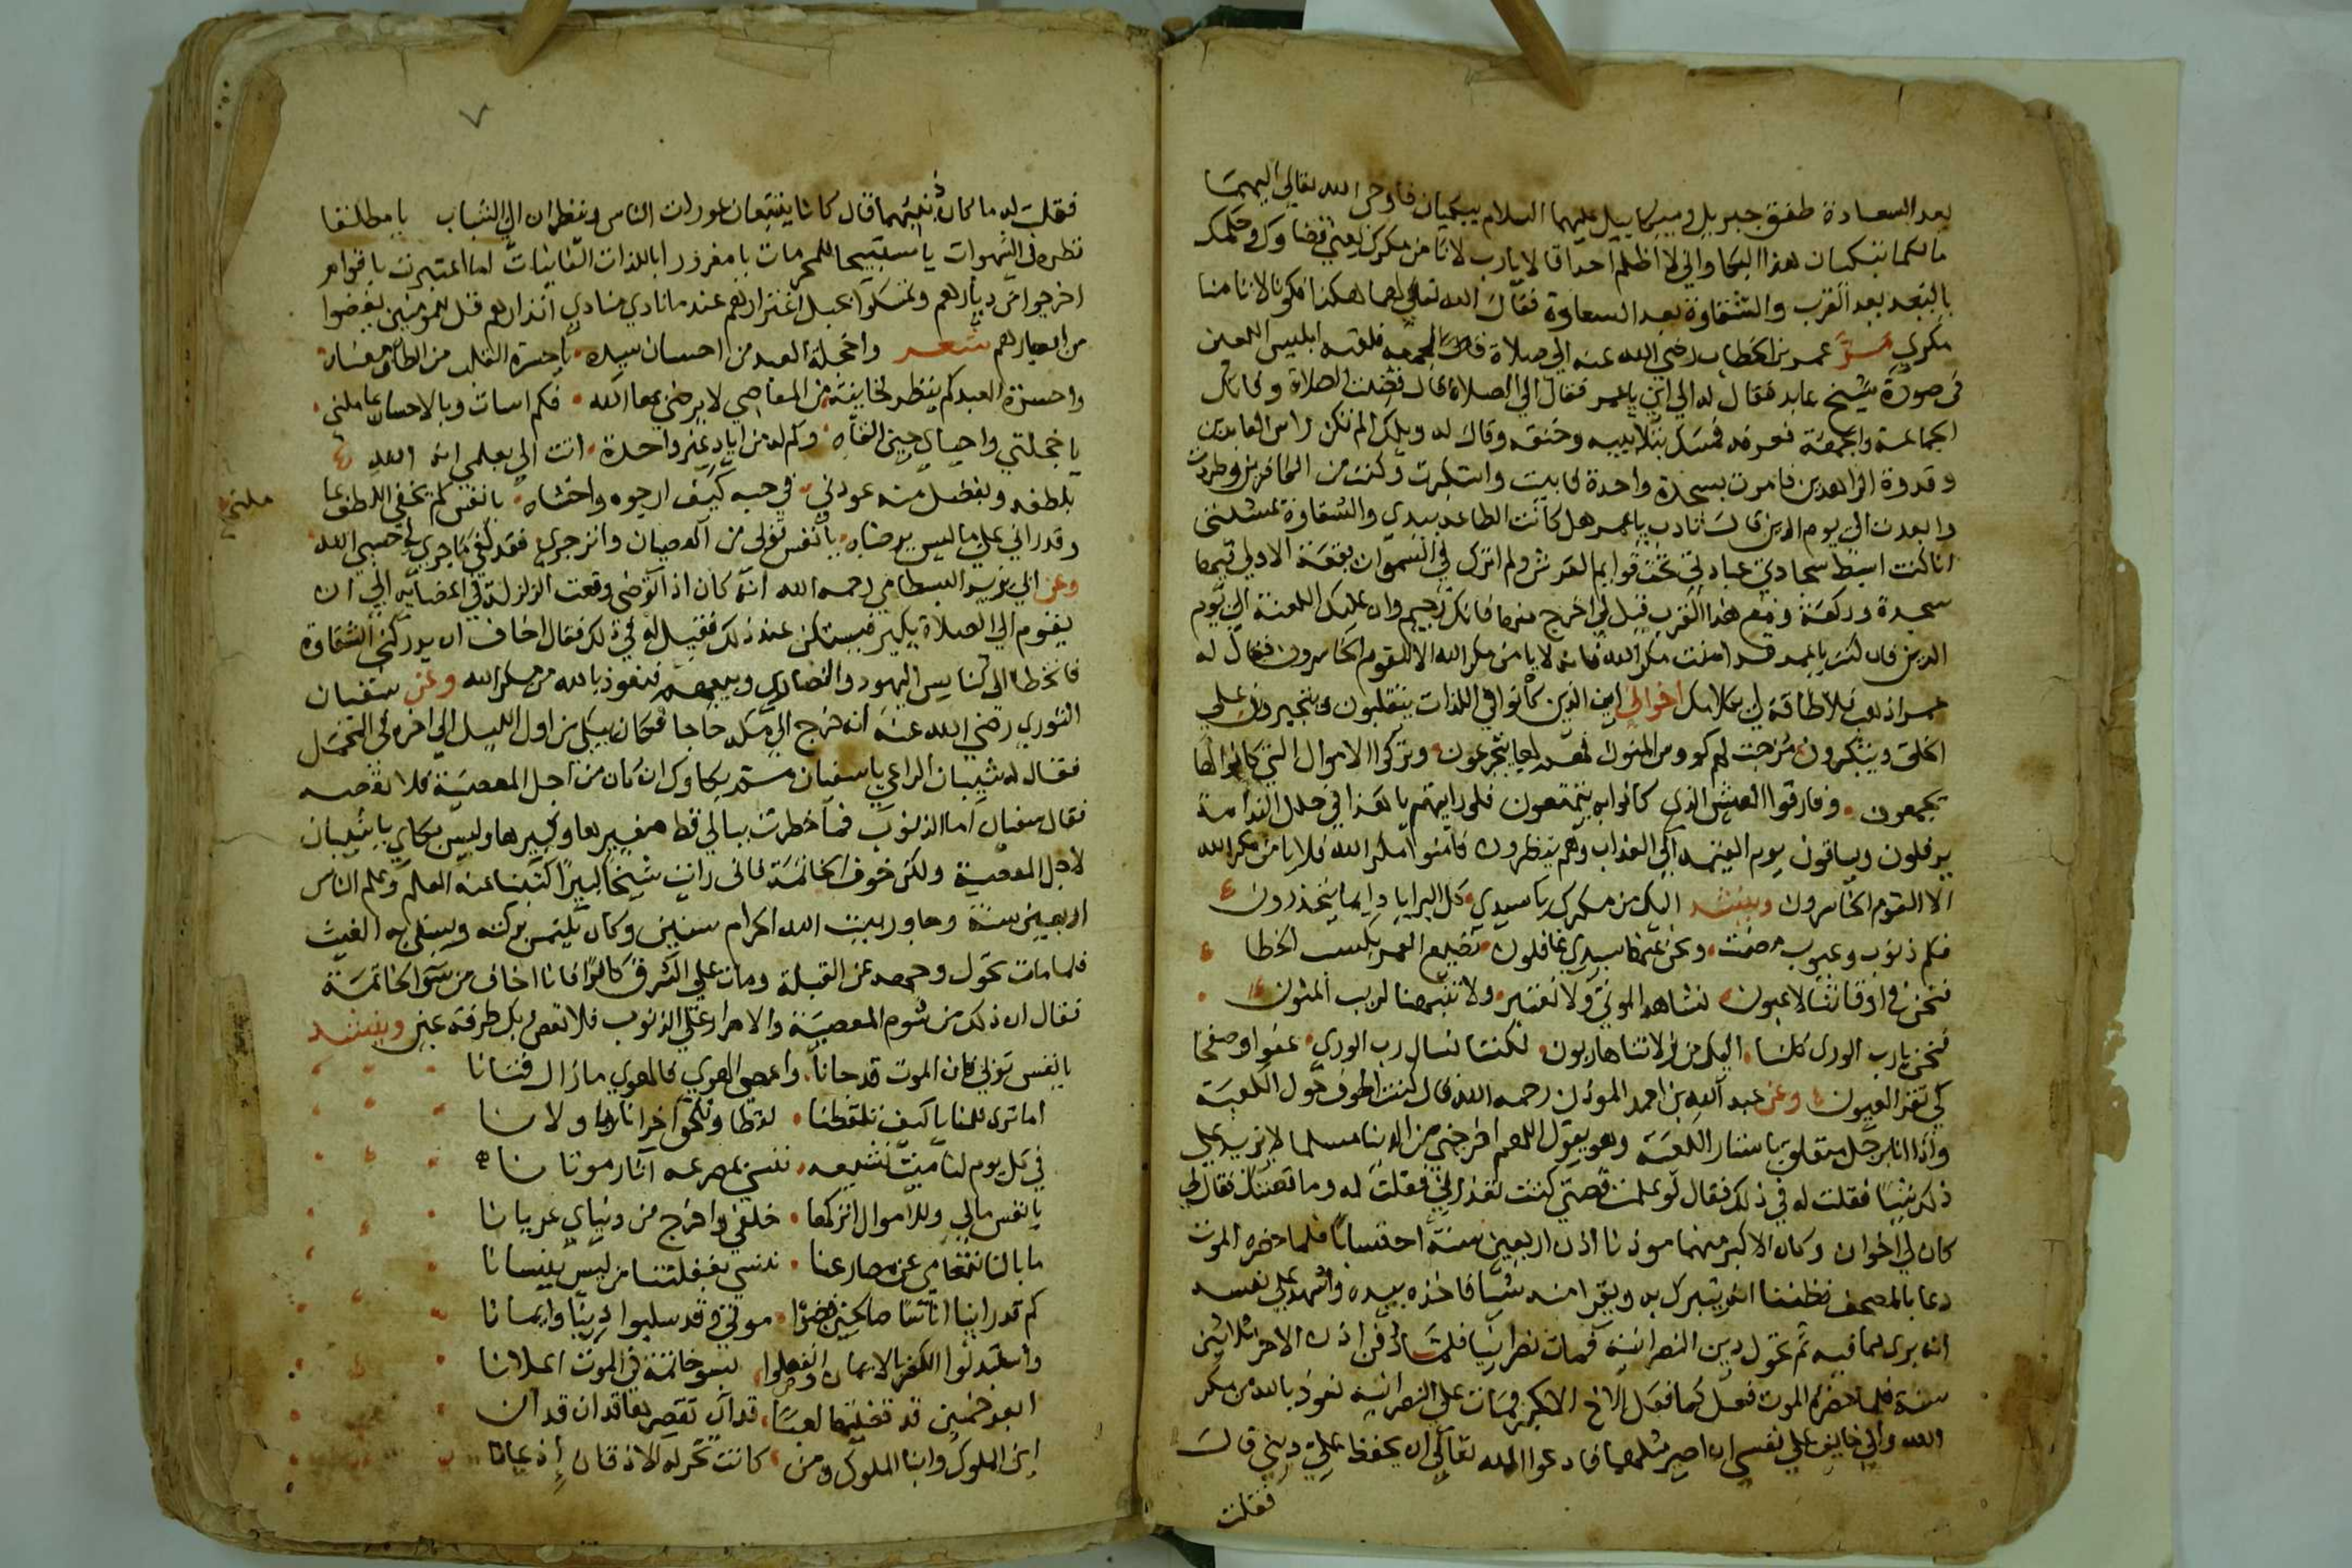 بعد السعادة طفق جبريل وميكاييل عليهما السلام يبكيان فاوحى الله تعالى اليهما
مالكما تبكيان هذا البكا واني لا اظلم احدا قالا يارب لانا من مكرك يعني قضاوك وحكمك
بالبعد بعد القرب والشقاوة بعد السعادة فقال الله تعالى لهما هكذا فكونا لا تامنا
مكري مر عمر بن الخطاب رضي الله عنه الى صلاة الجمعه فلقيه ابليس اللعين
في صورة شيخ عابد فقال له الي اين يا عمر فقال الي الصلاة قال فضلت الصلاة و
الجماعة والجمعة فعرفه فمسك بتلابيبه وخنقه وقال له ويلك الم تكن راس العابدين
وقدوة الزاهدين فامرت بسجدة واحدة فابيت واستكبرت وكنت من الكافرين وطردت
وابعدت الي يوم الدين قال تادب يا عمر هل كانت الطاعة بيدي والشقاوة بمشيئتي
انا كنت ابسط سجادتي عبادتي تحت قوايم العرش ولم اترك في السموات بقعة الا ولي فيها
سجدة وركعة ومع هذا القرب قيل لي اخرج منها فانك رجيم وان عليك اللعنة الي يوم
الدين فان كنت يا عمر قد امنت مكر الله فانه لا يامن مكر الله الا القوم الخاسرون فقال له
عمر اذهب فلا طاقة لي بكلامك اخواني اين الذين كانوا في اللذات يتقلبون ويتجبرون علي
الخلق ويتكبرون مزجت لهم كووس المنون فهم لها يتجرعون وتركوا الاموال التي كانوا لها
يجمعون وفارقوا العيش الذي كانوا به يتمتعون فلو رايتهم يا هذا في حلل الندامة
يرفلون ويساقون يوم القيمه الي العذاب وهم ينظرون فامنوا مكر الله فلا يامن مكر الله
الا القوم الخاسرون وينشد اليك من مكرك يا سيدي كل البرايا دايما يحذرون
فكم ذنوب وعيوب مضت ونحن عنها سيدي غافلون نضيع العمر بكسب الخطا
فنحن في اوقاتنا لاعبون نشاهد الموتي ولا نعتبر ولا تنبهنا لريب المنون
فنحن يارب الوري كلنا اليك من زلاتنا هاربون لكننا نسال رب الوري عفوا وصفحا
كي تقر العيون وعن عبد الله بن احمد المؤذن رحمه الله قال كنت اطوف حول الكعبة
واذا انا برجل متعلق باستار الكعبة وهو يقول اللهم اخرجني من الدنيا مسلما لا يزيد علي
ذلك شيئا فقلت له في ذلك فقال لو علمت قصتي كنت تعذرني فقلت له وما قصتك فقال لي
كان لي اخوان وكان الاكبر منهما موذنا اذن اربعين سنة احتسابا فلما حضره الموت
دعا بالمصحف فظننا انه يتبرك به ويقرا منه شيا فاخذه بيده واشهد علي نفسه
انه بري مما فيه ثم تحول دين النصرانية فمات نصرانيا فلما دفن اذن الاخر ثلاثين
سنة فلما حضره الموت فعل كما فعل الاخ الاكبر فمات علي النصرانية نعوذ بالله من مكر
الله واني خايف علي نفسي ان اصير مثلهما فادعوا الله تعالي ان يحفظ علي ديني قال
فقلت
فقلت له ما كان ذنبهما قال كانا يتبعان عورات الناس وينظران الي الشباب يا مطلقا
نظره في الشهوات يا مستبيحا للمحرمات يا مغرورا باللذات الفانيات اما اعتبرت باقوام
اخرجوا من ديارهم وتمسكوا بحبل اغترارهم عند ما نادي منادي انذارهم قل للمومنين يغضوا
من ابصارهم شعر واخجلة العبد من احسان سيده يا حسرة القلب من الطاف معناه
واحسرة العبد كم ينظر لخاينة من المعاصي لا يرضي بها الله فكم اسات وبالاحسان عاملني
يا خجلتي واحياي حين القاه وكم له من اياد غير واحدة انت الي بعلمي انه الله
بلطفه وبفضل منه عودني في حبه كيف ارجوه واخشاه يا نفس كم بخفي اللطف عا
ملني
وقد راني علي ما ليس يرضاه يا نفس توبي من العصيان وانزجري فقد كفي ما جري لي حسبي الله
وعن ابي يزيد البسطامي رحمه الله انه كان اذا توضى وقعت الزلزلة في اعضايه الي ان
يقوم الي الصلاة يكبر فيسكن عند ذلك فقيل له في ذلك فقال اخاف ان يدركني الشقاوة
فاتخطا الي كنايس اليهود والنصاري وبيعهم فنعوذ بالله من مكر الله وعن سفيان
الثوري رضي الله عنه انه خرج الي مكة حاجا فكان يبكي من اول الليل الي اخره في المحمل
فقال له شيبان الراعي يا سفيان بكاوك ان كان من اجل المعصية فلا تعصه
فقال سفيان اما الذنوب فما خطرت ببالي قط صغيرها وكبيرها وليس بكاي يا شيبان
لاجل المعصية ولكن خوف الخاتمة فاني رايت شيخا كبيرا كتبنا عنه العلم وعلم الناس
اربعين سنة وجاور بيت الله الحرام سنين وكان يلتمس بركته ويستقي به الغيث
فلما مات تحول وجهه عن القبلة ومات علي الشرق كافرا فانا اخاف من سوء الخاتمة
فقال ان ذلك من شوم المعصية والاصرار علي الذنوب فلا تعص ربك طرفة عين وينشد
يا نفس توبي فان الموت قد حانا واعصي الهوي فالهوي مازال فتانا
اما تري للمنايا كيف تلقطنا لقطا وتلحق اخرانا باولانا
في كل يوم لنا ميت نشيعه ننسي بمصرعه اثار موتانا
يا نفس مالي وللاموال اتركها خلفي واخرج من دنياي عريانا
ما بالنا نتعامي عن مصارعنا ننسي بغفلتنا من ليس ينسانا
كم قد راينا اناسا صالحين قضوا موتي وقد سلبوا دينا وايمانا
واستبدلوا الكفر بالايمان وانفصلوا بسو خاتمة في الموت اعلانا
ابعد خمسين قد قضيتها لعبا قد ان تقصر بها قد ان قد ان
اين الملوك وابنا الملوك ومن كانت تخر له الاذقان اذعانا